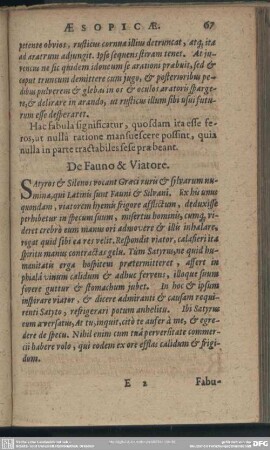 ÆSOPICÆ. 67
petente obvios, rusticus cornua illius detruncat, atq, ita
ad aratrum adjungit. Ipse sequens stivam tenet. At ju-
vencus ne sic quidem idoneum se arationi præbuit, sed &
caput truncum demittere cum jugo, & posterioribus pe-
dibus pulverem & glebas in os & oculos aratoris sparge-
re, & delirare in arando, ut rusticus illum sibi usui futu-
rum esse desperaret.
Hac fabula significatur, quosdam ita esse fe-
ros, ut nulla ratione mansuescere possint, quia
nulla in parte tractabiles sese præbeant.
De Fauno & Viatore.
SAtyros & Silenos vocant Græci ruris & sylvarum nu-
mina, qui Latinis sunt Fauni & Silvani. Ex his unus
quondam, viatorem hyemis frigore afflictum, deduxisse
perhibetur in specum suum, misertus hominis, cumq, vi-
deret crebrò eum manus ori admovere & illis inhalare,
rogat quid sibi ea res velit. Respondit viator, calasieri ita
spiritu manus contractas gelu. Tùm Satyrus, ne quid hu-
manitatis erga hospitem prætermitteret, affert in
phiala vinum calidum & adhuc fervens, illoque suum
fovere guttur & stomachum jubet. In hoc & ipsum
inspirare viator, & dicere admiranti & causam requi-
renti Satyro, refrigerari potum anhelitu. Ibi Satyrus
eum aversatus, At tu, inquit, citò te aufer à me, & egre-
dere de specu. Nihil enim cum tuâ perversitate commer-
cii habere volo, qui eodem ex ore efflas calidum & frigi-
dum.
E 2 Fabu-
DFG